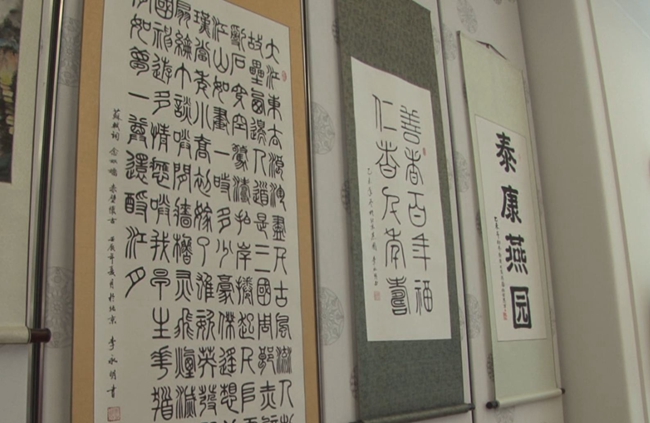 大江東去浪淘盡千古風流人
故壘西邊人道是三國周郎赤
石穿空驚濤拍岸捲起千堆
江山如畫一時多少豪傑遙想
瑾當年小喬初嫁了雄姿英發
扇綸巾談笑間檣櫓灰飛煙滅
國神遊多情應笑我早生華
如夢一尊還酹江月
蘇軾詞 念奴嬌 赤壁懷古 壬辰年夏月於北京 李永明書
善者百年福
仁者年壽
泰康燕园